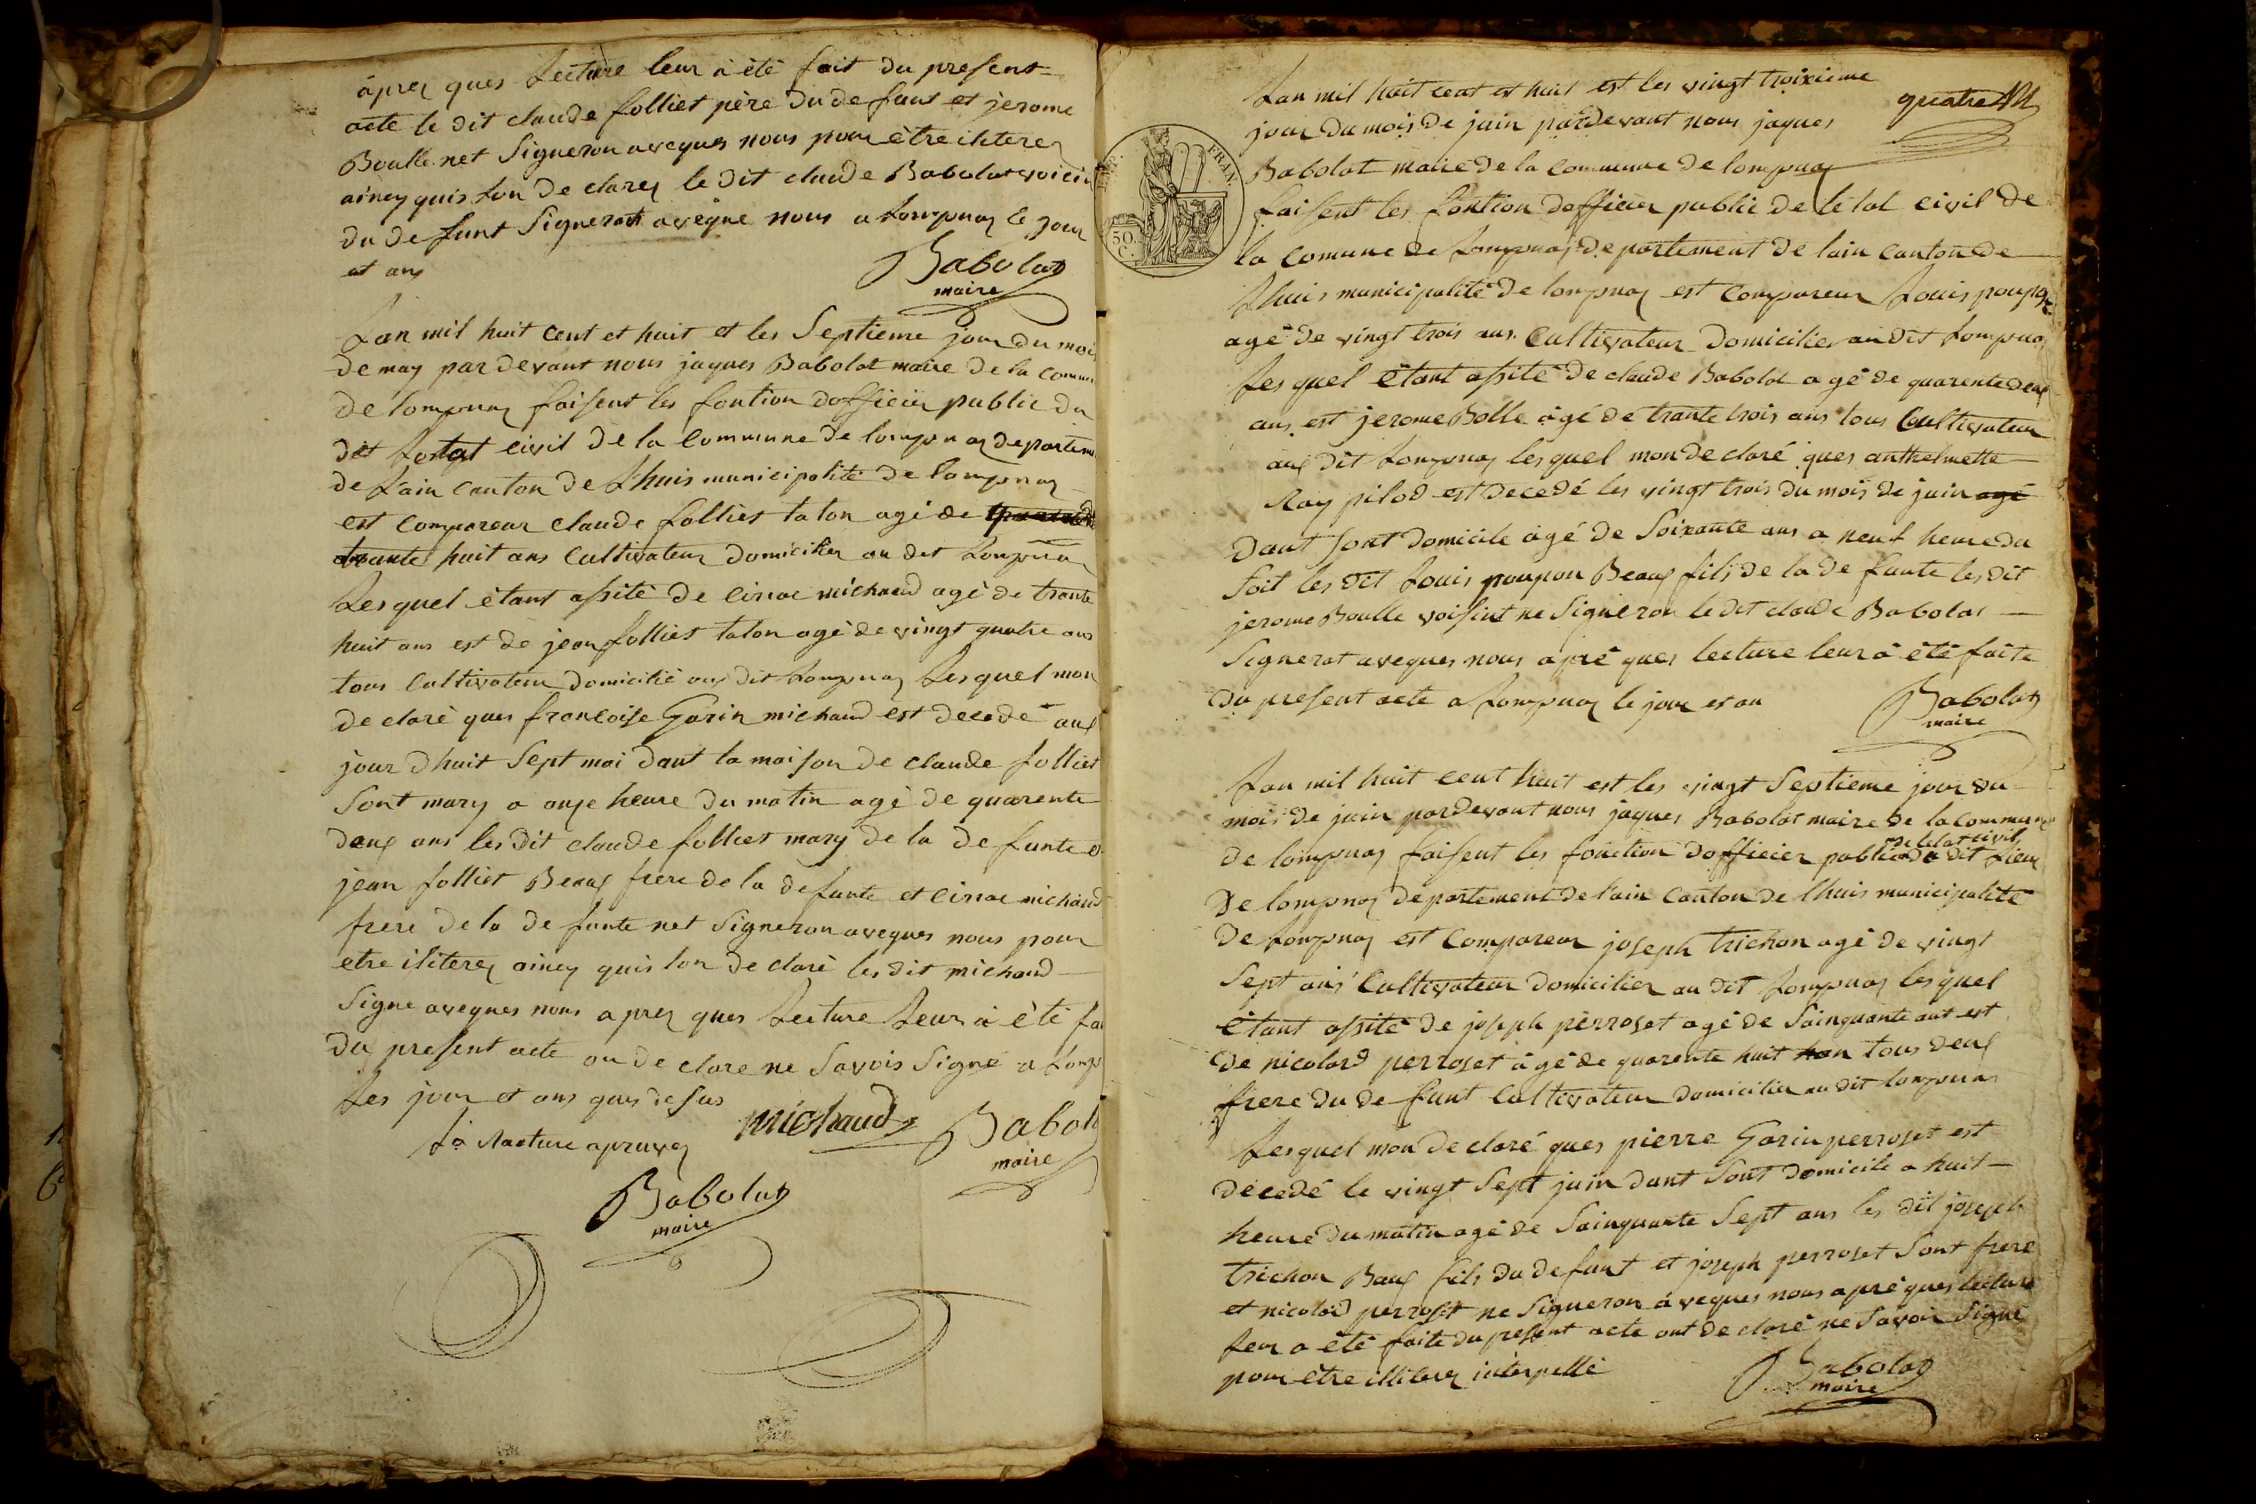 àprez ques Lecture leur à èté fait du present
acte le dit claude folliet père du defunt et jerome
Boulle net Signeron aveques nous pour être iliterez
ainey quis lon declarez le dit claude Babolat voicin
du defunt Signerat avèque nous a Lompnaz le jour
et ans
Babolat
maire
Lan mil huit cent et huit et les Septieme jour du mois
de may par devant nous jaques Babolat maire de la Commu
de lompnaz faisent les fontion dofficier public du
dit Letat civil de la Commune de lompnaz departem
de Lain Canton de Lhuis municipalité de lompnaz
est Compareur claude folliet talon agé de
trante huit ans Cultivateur domicilier au dit Lompna
Les quel étant assité de Cirac michaud agé de trante
huit ans est de jean folliet talon agé de vingt quatre ans
tous Cultivateur domicilié aux dit Lompnaz Les quel mon
declaré ques francoise Garin michaud est decedé aux
jour dhuit Sept mai dant la maison de claude folliet
Sont mary a onze heure du matin agé de quarente
deux ans les dit claude folliet mary de la defunte e
jean folliet Beaux frere de la defunte et Cirac michaud
frere de la defunte net Signeron aveques nous pour
etre iliterez ainey quis lon declaré les dit michaud
Signe aveques nous aprez ques Lecture Leur à èté fa
du present acte on declare ne Savoir Signé a Lomp
Les jour et ans ques desus
michaud
Babola
maire
La Racture apruvez
Babolat
maire
quatre
Lan mil huit cent et huit est les vingt troixieme
jour du mois de juin pardevant nous jaques
Babolat maire de la Commune de lompnaz
faisent les fontion dofficier public de létat civil de
la Comune de Lompnaz departement de lain Canton de
Lhuis municipalité de lompnaz est Compareur Louis poupon
agé de vingt trois ans Cultivateur domicilier au dit Lompnaz
Les quel étant assité de claude Babolat agé de quarente deux
ans est jerome Bolle àgé de trante trois ans tous Cultivateur
aux dit Lompnaz les quel mon declaré ques anthelmette
Ray pilod est decedé les vingt trois du mois de juin agé
dant Sont domicile àgé de Soixante ans a neuf heure du
Soit les dit Louis poupon Beaux fils de la defunte les dit
jerome Boulle voisint ne Signeron le dit claude Babolat
Signerat aveques nous apré ques lecture leur à été faite
du present acte a Lompnaz le jour et an
Babolat
maire
Lan mil huit cent huit est les vingt Septieme jour du
mois de juin pardevant nous jaques Babolat maire de la Commune
de letat civil
de lompnaz faisent les fonction dofficier public du dit Lieu
de lompnaz departement de lain Canton de lhuis municipalité
de Lompnaz est Compareur joseph trichon agé de vingt
Sept ans Cultivateur domicilier au dit Lompnaz les quel
étant assité de joseph perroset agé de Sainquante ant est
de nicolard perroset àgé de quarente huit han tous deux
frere du defunt Cultivateur domicilier au dit lompnas
Les quel mon declaré ques pierre Garin perroset est
decedé le vingt Sept juin dant Sont domicile a huit
heure du matin agé de Sainquante Sept ans les dit joseph
trichon Baux fils du defunt et joseph perroset Sont frere
et nicolad perroset ne Signeron áveques nous apré ques lecture
leur a été faite du present acte ont declaré ne Savoir Signé
pour être illiterez interpellé
Babolat
maire
FRAN.
50
C.